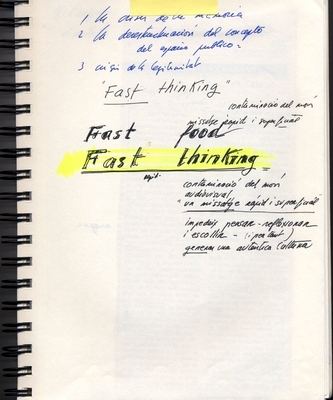 1 La crisi de la memòria
2 La desestructuración del concepto
del espacio publico =
3 crisis de la legitimidad
"Fast thinking"
contaminació del món
missatge rapid i superficial
Fast food
Fast thinking
rapid.
contaminació del món
audiovisual
"un missatge rapid i superficial"
impedeix pensar-reflexionar
i escollir - (i per tant)
generar una autèntica cultura